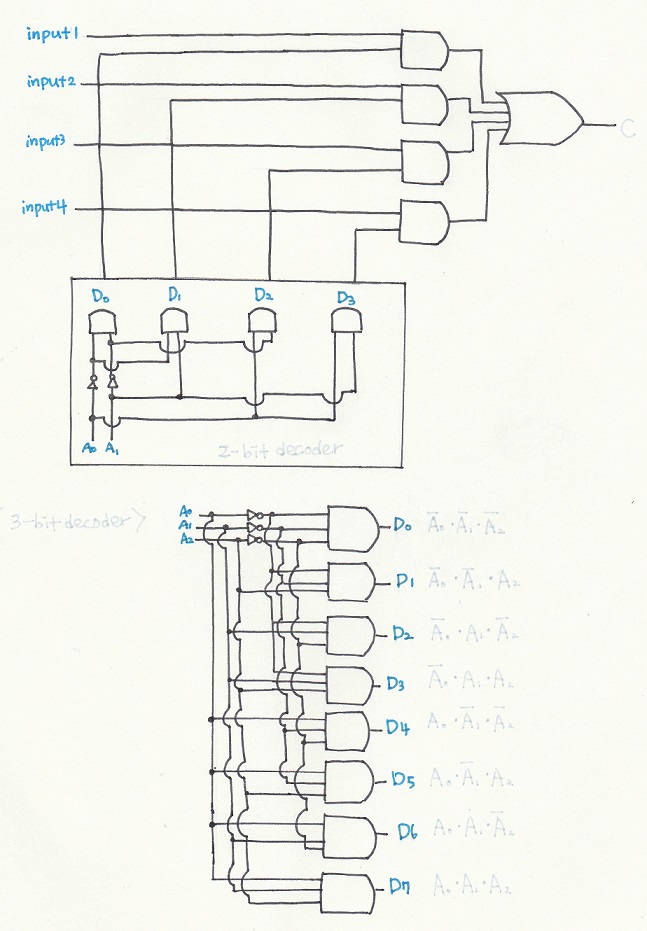 input1
input2
C
input3
input4
D₀ D₁ D₂ D₃
A₀ A₁
2-bit decoder
3-bit decoder >
A₀
A₁
A₂
D₀ A̅₀·A̅₁·A̅₂
D1 A̅₀·A̅₁·A₂
D2 A̅₀·A₁·A̅₂
D3 A̅₀·A₁·A₂
D4 A₀·A̅₁·A̅₂
D5 A₀·A̅₁·A₂
D6 A₀·A₁·A̅₂
D7 A₀·A₁·A₂